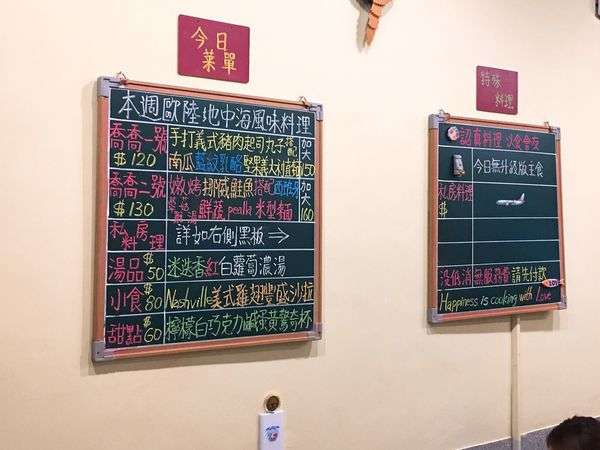 今日
菜單
本週歐陸地中海風味料理
喬喬一號
$120
手打義式豬肉起司丸子搭配
南瓜藍紋乳酪堅果義大利直麵
加大
150
喬喬二號
$130
嫩烤挪威鮭魚搭配
鮮蔬 pealla 米型麵
加大
160
私房
料理
詳如右側黑板→
湯品 $50
迷迭香紅白蘿蔔濃湯
小食 $80
Nashville美式雞翅豐盛沙拉
甜點 $60
檸檬白巧克力鹹蛋黃驚奇杯
特殊
料理
認真料理 以食會友
今日無升級版主食
私房料理
$
没低消無服務費 請先付款
Happiness is cooking with Love